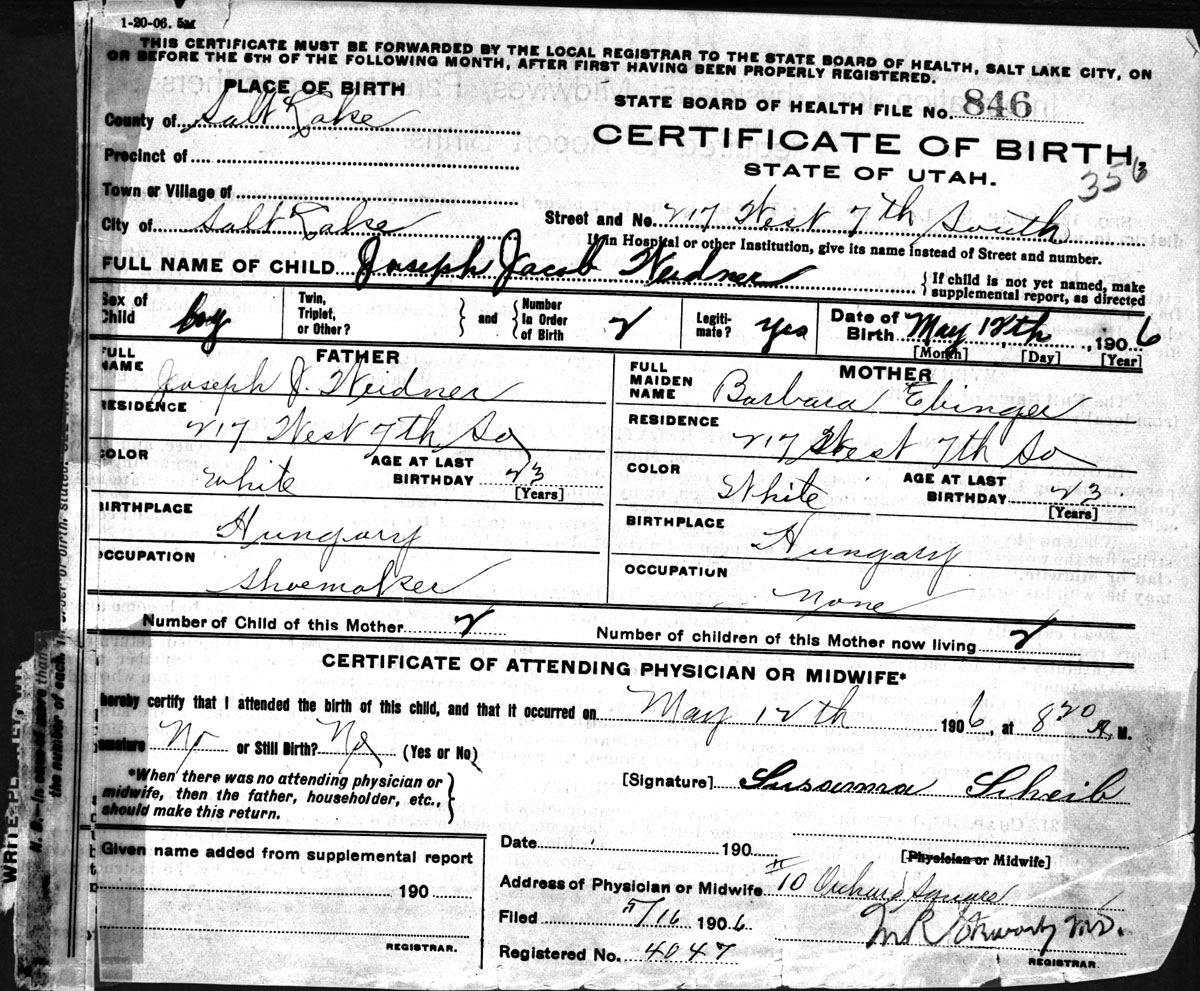 1-20-06. 5M
THIS CERTIFICATE MUST BE FORWARDED BY THE LOCAL REGISTRAR TO THE STATE BOARD OF HEALTH, SALT LAKE CITY, ON
OR BEFORE THE 5TH OF THE FOLLOWING MONTH, AFTER FIRST HAVING BEEN PROPERLY REGISTERED.
PLACE OF BIRTH
STATE BOARD OF HEALTH FILE No. 846
County of Salt Lake
CERTIFICATE OF BIRTH,
Precinct of
STATE OF UTAH.
356
Town or Village of
City of Salt Lake Street and No. 217 West 7th South
If in Hospital or other Institution, give its name instead of Street and number.
FULL NAME OF CHILD Joseph Jacob Weidner
{If child is not yet named, make
supplemental report, as directed
Sex of Child boy
Twin, Triplet, or Other? } and { Number In Order of Birth 2
Legiti-mate? yes
Date of Birth May 12th, 1906
[Month] [Day] [Year]
FATHER
FULL NAME Joseph J. Weidner
RESIDENCE 217 West 7th So
COLOR White AGE AT LAST BIRTHDAY 23
[Years]
BIRTHPLACE Hungary
OCCUPATION Shoemaker
MOTHER
FULL MAIDEN NAME Barbara Ebinger
RESIDENCE 217 West 7th So
COLOR White AGE AT LAST BIRTHDAY 23
[Years]
BIRTHPLACE Hungary
OCCUPATION None
Number of Child of this Mother 2 Number of children of this Mother now living 2
CERTIFICATE OF ATTENDING PHYSICIAN OR MIDWIFE*
hereby certify that I attended the birth of this child, and that it occurred on May 12th 1906, at 8 20 A. M.
mature No or Still Birth? No (Yes or No)
*When there was no attending physician or
midwife, then the father, householder, etc.,
should make this return.
[Signature] Sussanna Scheib
[Physician or Midwife]
Given name added from supplemental report
190
REGISTRAR.
Date 190
Address of Physician or Midwife # 10 Orchard Square
Filed 5/16 1906
Registered No. 4047
M.D.
REGISTRAR.
N. B.—In case of more than
the number of each